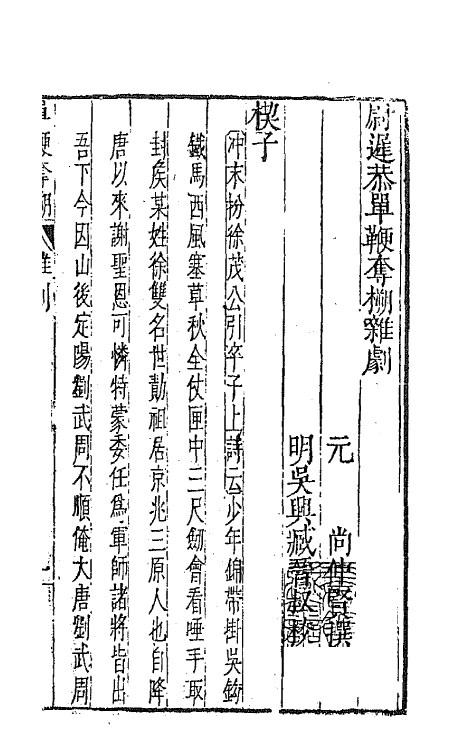 尉遲恭單鞭奪槊雜劇
元　尚仲賢撰
明吳興臧晉叔校
楔子
沖末扮徐茂公引卒子上詩云少年錦帶掛吳鉤
鐵馬西風塞草秋全仗匣中三尺劍會看唾手取
封侯某姓徐雙名世勣祖居京兆三原人也自降
唐以來謝聖恩可憐特蒙委任爲軍師諸將皆出
吾下今因山後定陽劉武周不順俺大唐劉武周
單鞭奪槊　雜劇　一